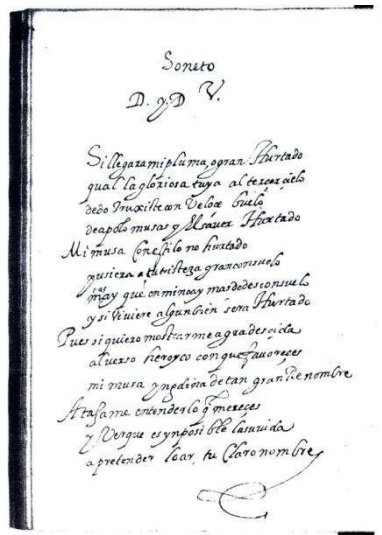 Soneto
D. y D V.
Si llegara mi pluma, o gran Hurtado
qual la gloriosa tuya al tercer çielo
dedo truxiste con veloz buelo
de apolo musas y El saver Hurtado
Mi musa Con estilo no hurtado
pusiera a tu tristeza gran consuelo
mas ay que en mi no ay mas de desconsuelo
y si viviere algun bien sera Hurtado
Pues si quiero mostrarme agradesçida
al verso heroyco con que favoreçes
mi musa yndina de tan gran Renombre
Atajame entender lo q̃ mereçes
y Ver que es ynposible la suvida
a pretender loar, tu Claro nombre